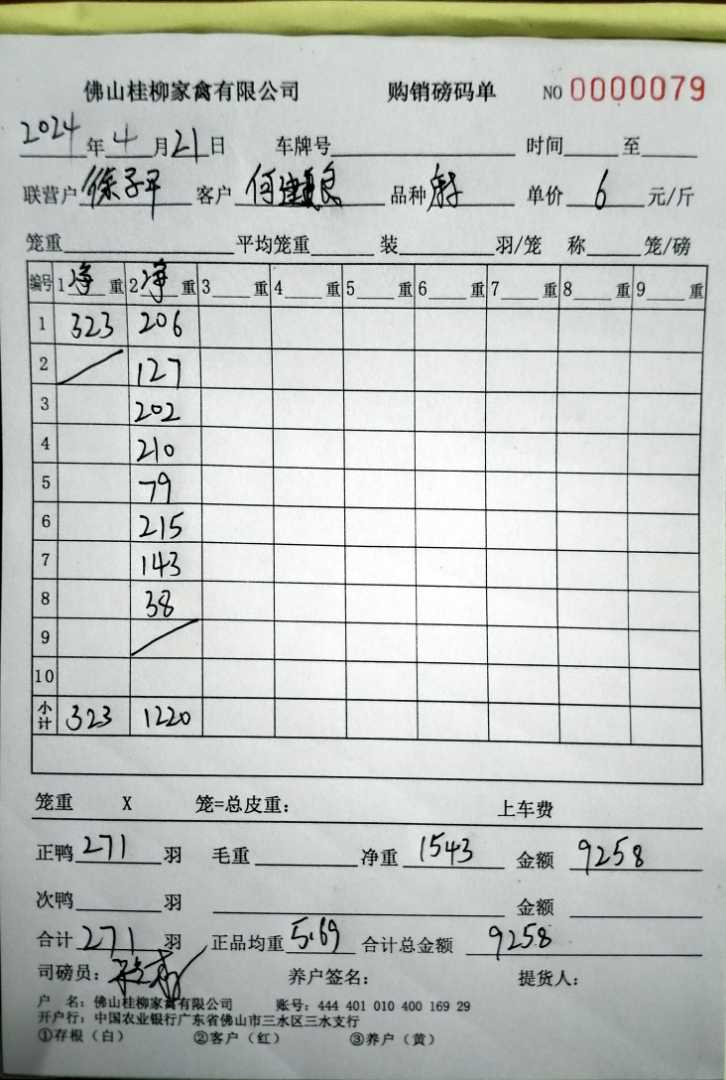 佛山桂柳家禽有限公司 购销磅码单 NO 0000079
2024年4月21日 车牌号 时间 至
联营户 徐子平 客户 何建良 品种 单价 6 元/斤
笼重 平均笼重 装 羽/笼 称 笼/磅
编号 1 净 重 2 净 重 3 重 4 重 5 重 6 重 7 重 8 重 9 重
1 323 206
2 127
3 202
4 210
5 79
6 215
7 143
8 38
9
10
小计 323 1220
笼重 X 笼=总皮重: 上车费
正鸭 271 羽 毛重 净重 1543 金额 9258
次鸭 羽 金额
合计 271 羽 正品均重 5.69 合计总金额 9258
司磅员: 养户签名: 提货人:
户 名: 佛山桂柳家禽有限公司 账号: 444 401 010 400 169 29
开户行: 中国农业银行广东省佛山市三水区三水支行
①存根(白) ②客户(红) ③养户(黄)